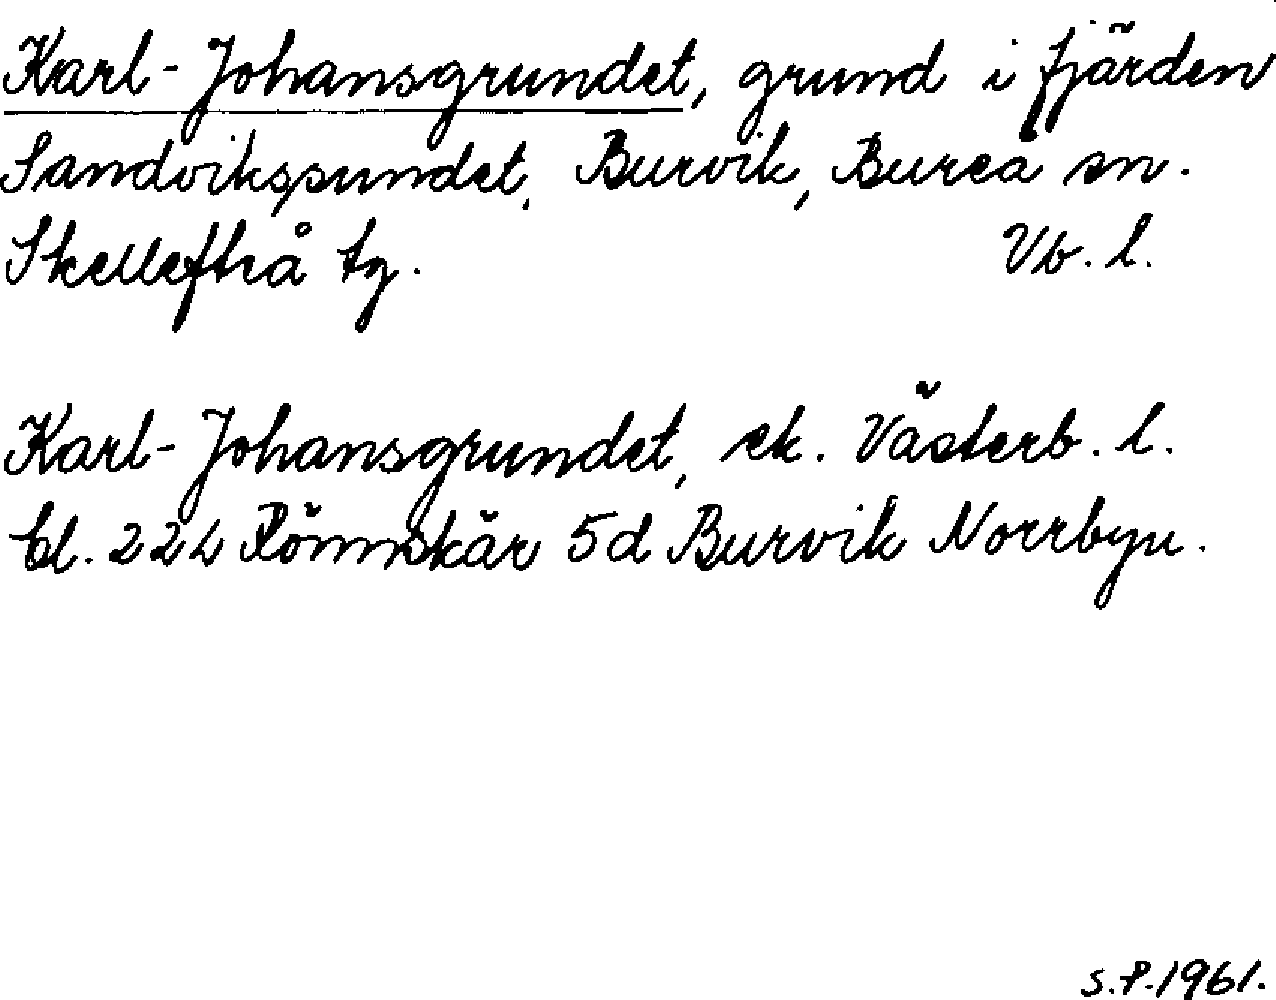 Karl-Johansgrundet, grund i fjärden
Sandvikssundet, Burvik, Bureå sn.
Skellefteå tg.
Vb. l.
Karl-Johansgrundet, ek. Västerb. l.
bl. 22L Rönnskär 5d Burvik Norrbyn.
S.P.1961.